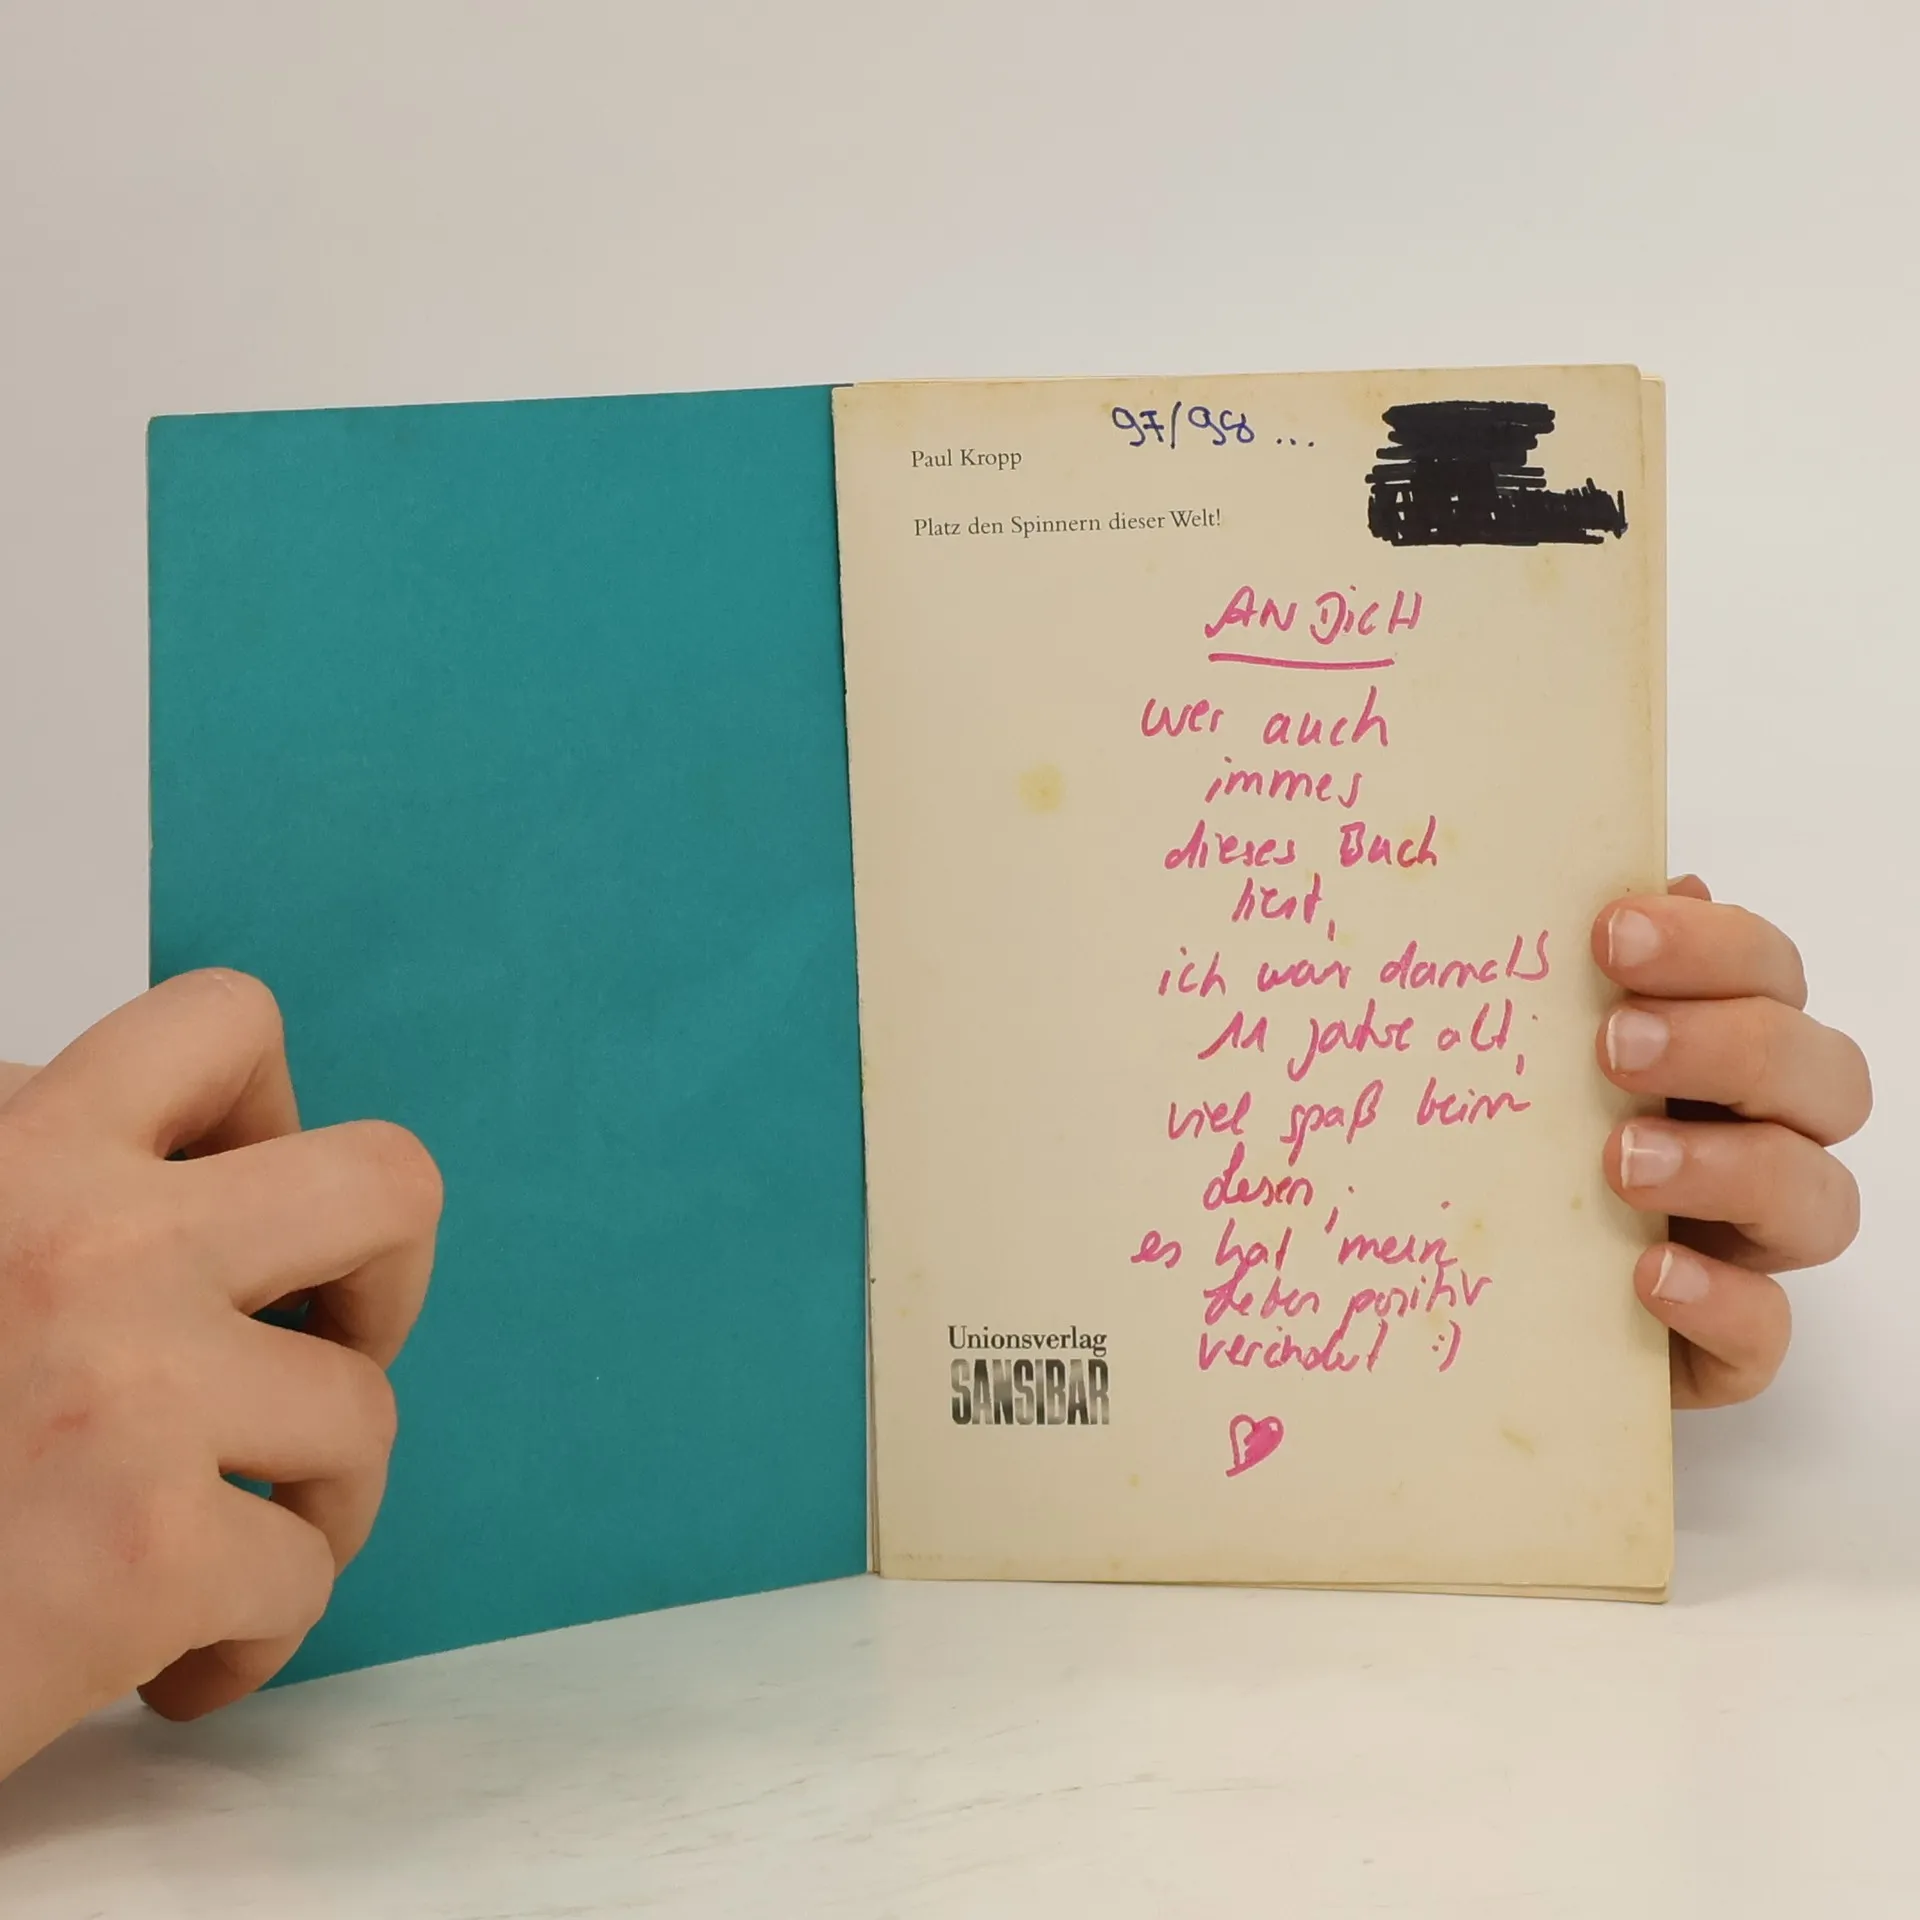 97/98 ...
Paul Kropp
Platz den Spinnern dieser Welt!
AN DICH
wer auch
immer
dieses Buch
liest,
ich war damals
11 Jahre alt,
viel spaß beim
Lesen,
es hat mein
Leben positiv
verändert :)
Unionsverlag
SANSIBAR